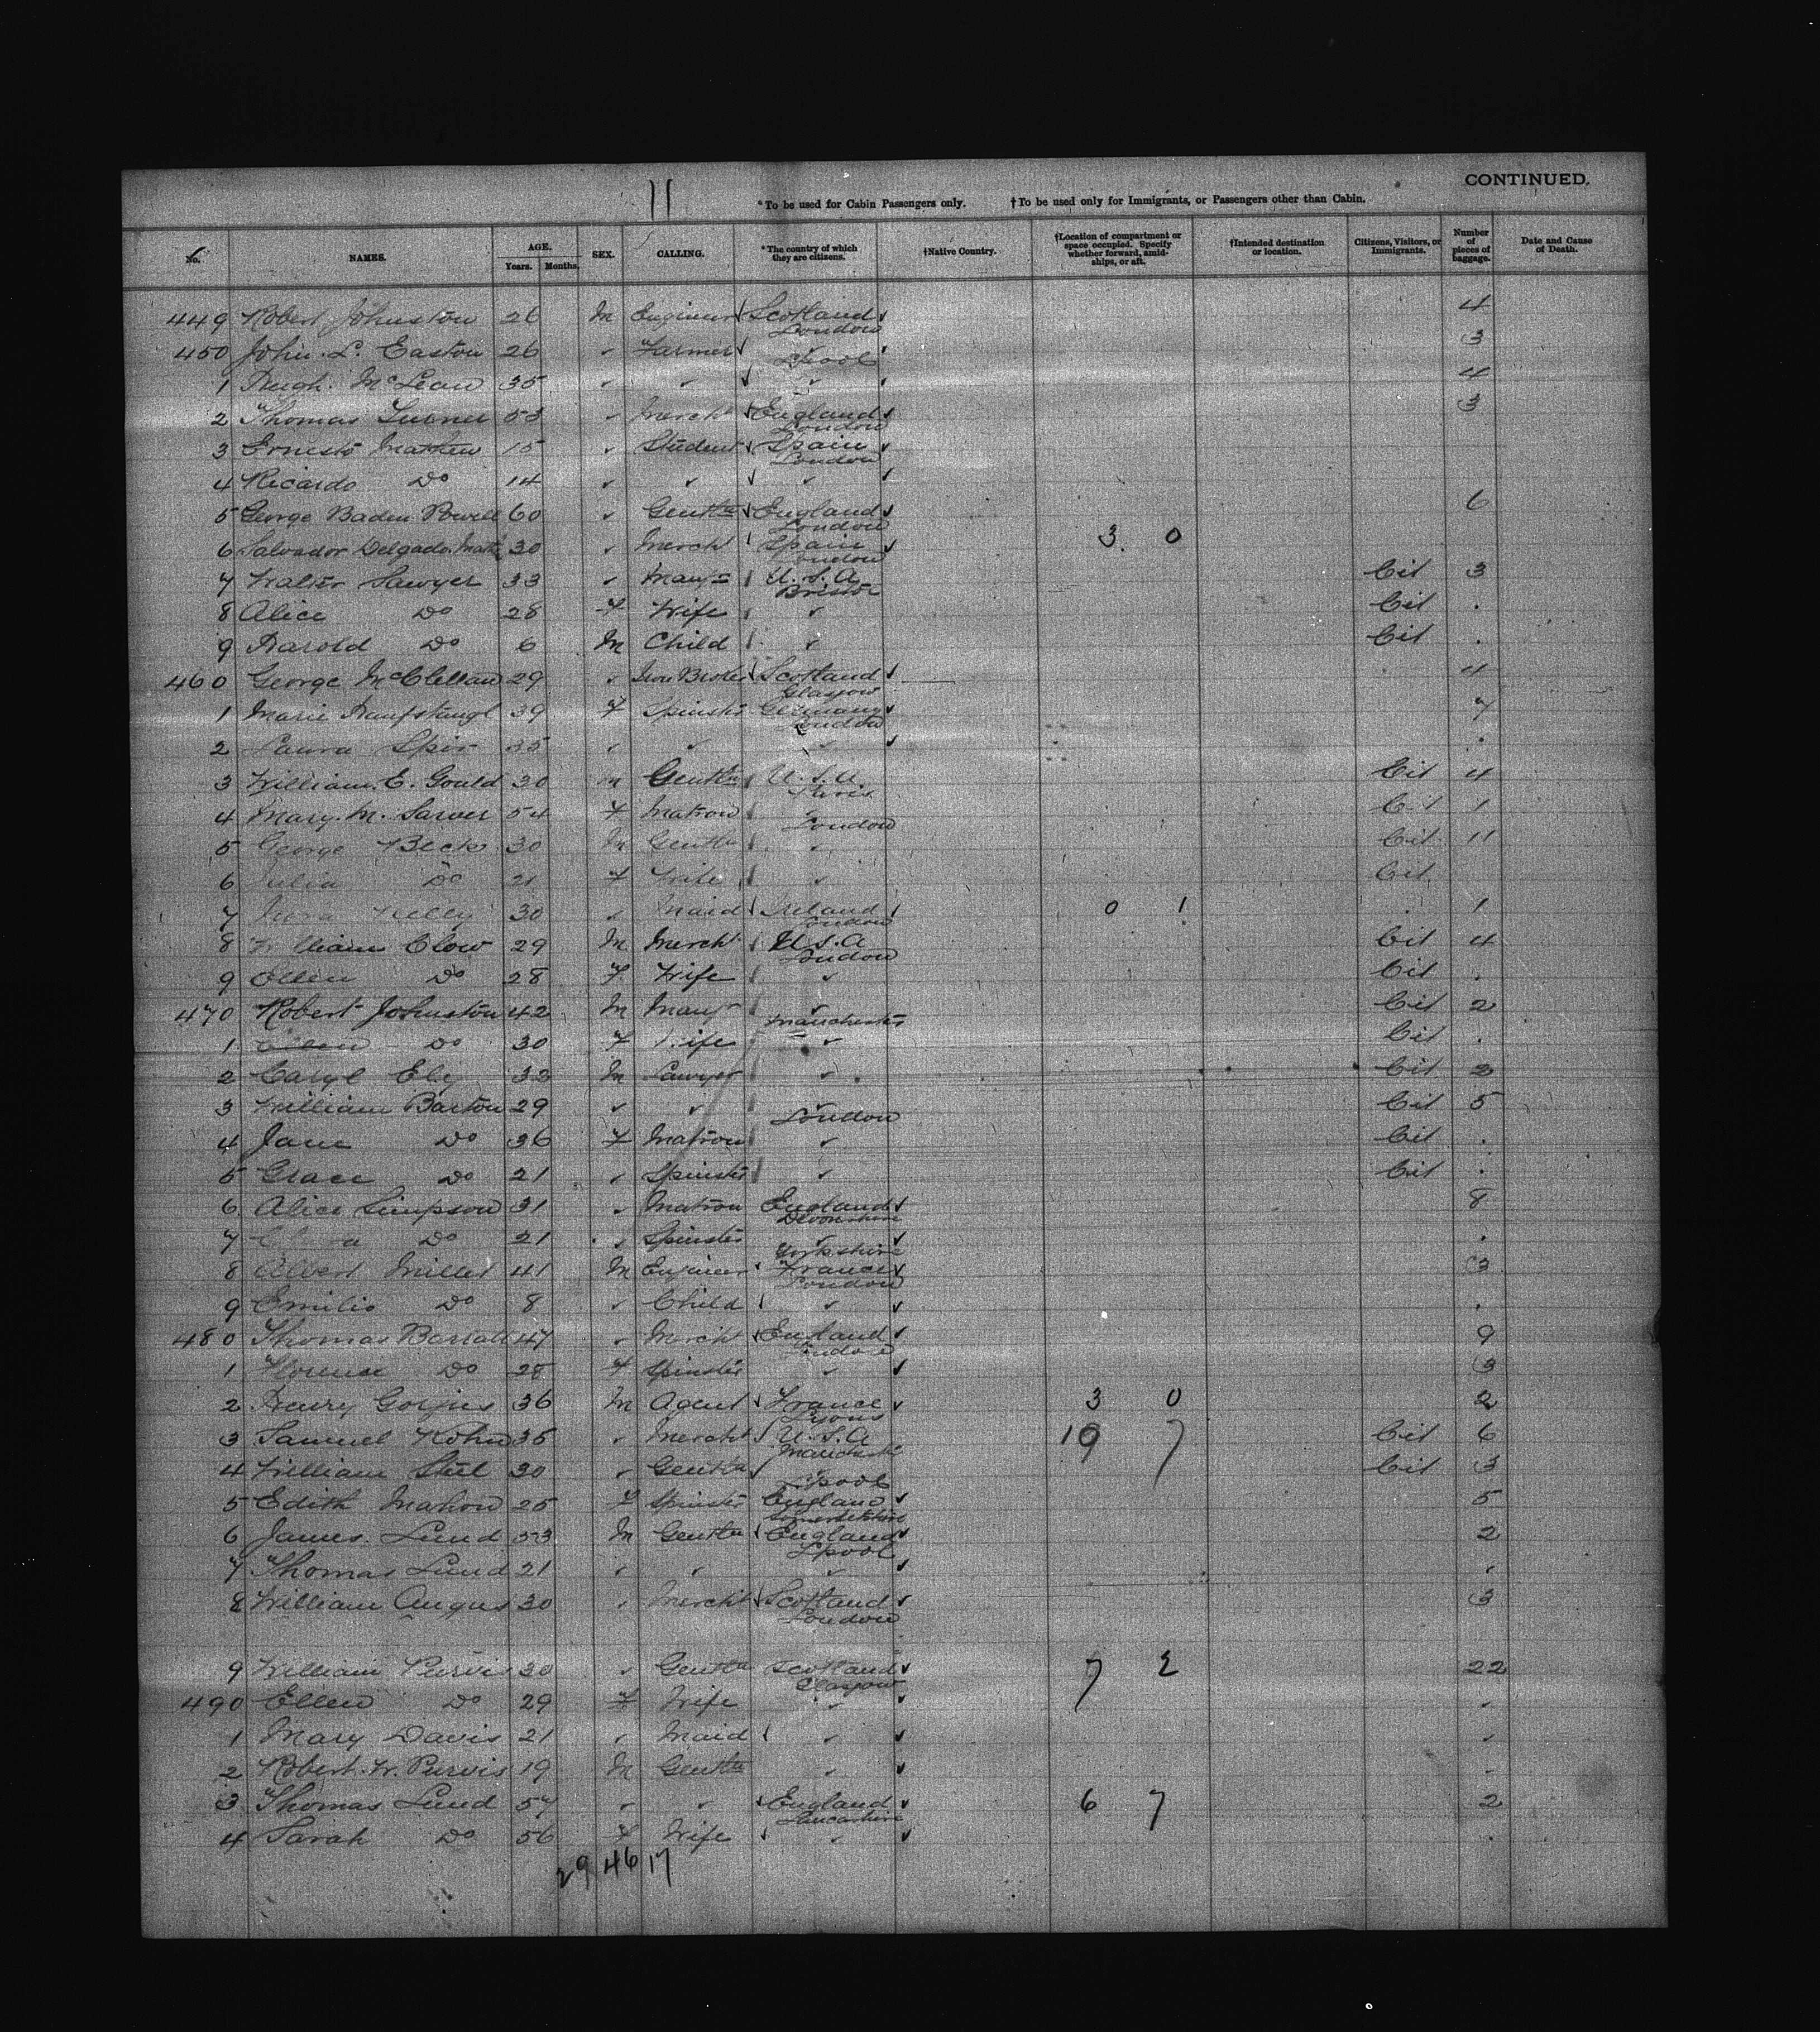 CONTINUED.
11
*To be used for Cabin Passengers only. †To be used only for Immigrants, or Passengers other than Cabin.
No. NAMES. AGE. Years. Months. SEX. CALLING. *The country of which they are citizens. †Native Country. †Location of compartment or space occupied. Specify whether forward, amidships, or aft. †Intended destination or location. Citizens, Visitors, or Immigrants. Number of pieces of baggage. Date and Cause of Death.
449 Robert Johnston 26 M Engineer Scotland 4
London
450 John. L. Easton 26 ✓ Farmer ✓ 3
L'pool
1 Hugh. McLean 35 ✓ ✓ ✓ 4
2 Thomas Turner 53 ✓ Mercht England 3
London
3 Ernesto Mathew 15 ✓ Student Spain
London
4 Ricardo Do 14 ✓ ✓ ✓
5 George Baden Powell 60 ✓ Gentln England 6
London
6 Salvador Delgado 30 ✓ Mercht Spain 3 0
London
7 Walter Sawyer 33 ✓ Manfr U.S.A Cit 3
Bristol
8 Alice Do 28 F Wife ✓ Cit .
9 Harold Do 6 M Child ✓ Cit .
460 George McClellan 29 ✓ Iron Broker Scotland 4
Glasgow
1 Marie Hanfstaengl 39 F Spinster Germany 7
London
2 Laura 35 ✓ ✓ ✓ .
3 William. E. Gould 30 M Gentln U.S.A Cit 4
Paris
4 Mary. M. Sarver 54 F Matron ✓ Cit 1
London
5 George Beck 30 M Gentln ✓ Cit 11
6 Julia Do 21 F Wife ✓ Cit
7 Kelly 30 ✓ Maid Ireland 0 1 1
London
8 William Clow 29 M Mercht U.S.A Cit 4
London
9 Ellen Do 28 F Wife ✓ Cit .
470 Robert Johnston 42 M Manfr ✓ Cit 2
Manchester
1 Ellen Do 30 F Wife ✓ Cit .
2 Caryl Ely 32 M Lawyer ✓ Cit 2
3 William Barton 29 ✓ ✓ ✓ Cit 5
London
4 Jane Do 36 F Matron ✓ Cit .
5 Grace Do 21 ✓ Spinster ✓ Cit .
6 Alice Simpson 31 ✓ Matron England 8
Devonshire
7 Clara Do 21 ✓ Spinster ✓ .
Yorkshire
8 Albert Millet 41 M Engineer France 3
London
9 Emilio Do 8 ✓ Child ✓ .
480 Thomas Barratt 47 ✓ Mercht England 9
London
1 Florence Do 28 F Spinster ✓ 3
2 Henry 36 M Agent France 3 0 2
Lyons
3 Samuel Kohn 35 ✓ Mercht U.S.A 19 7 Cit 6
Manchester
4 William Steel 30 ✓ Gentln ✓ Cit 3
L'pool
5 Edith Mahon 25 F Spinster England 5
Somersetshire
6 James. Lund 53 M Gentln England 2
L'pool
7 Thomas Lund 21 ✓ ✓ ✓ .
8 William Angus 30 ✓ Mercht Scotland 3
London
9 William Purvis 30 ✓ Gentln Scotland 7 2 22
Glasgow
490 Ellen Do 29 F Wife ✓ ✓
1 Mary Davis 21 ✓ Maid ✓ ✓
2 Robert. W. Purvis 19 M Gentln ✓ .
3 Thomas Lund 57 ✓ ✓ England 6 7 2
Lancashire
4 Sarah Do 56 F Wife ✓ .
29 46 17